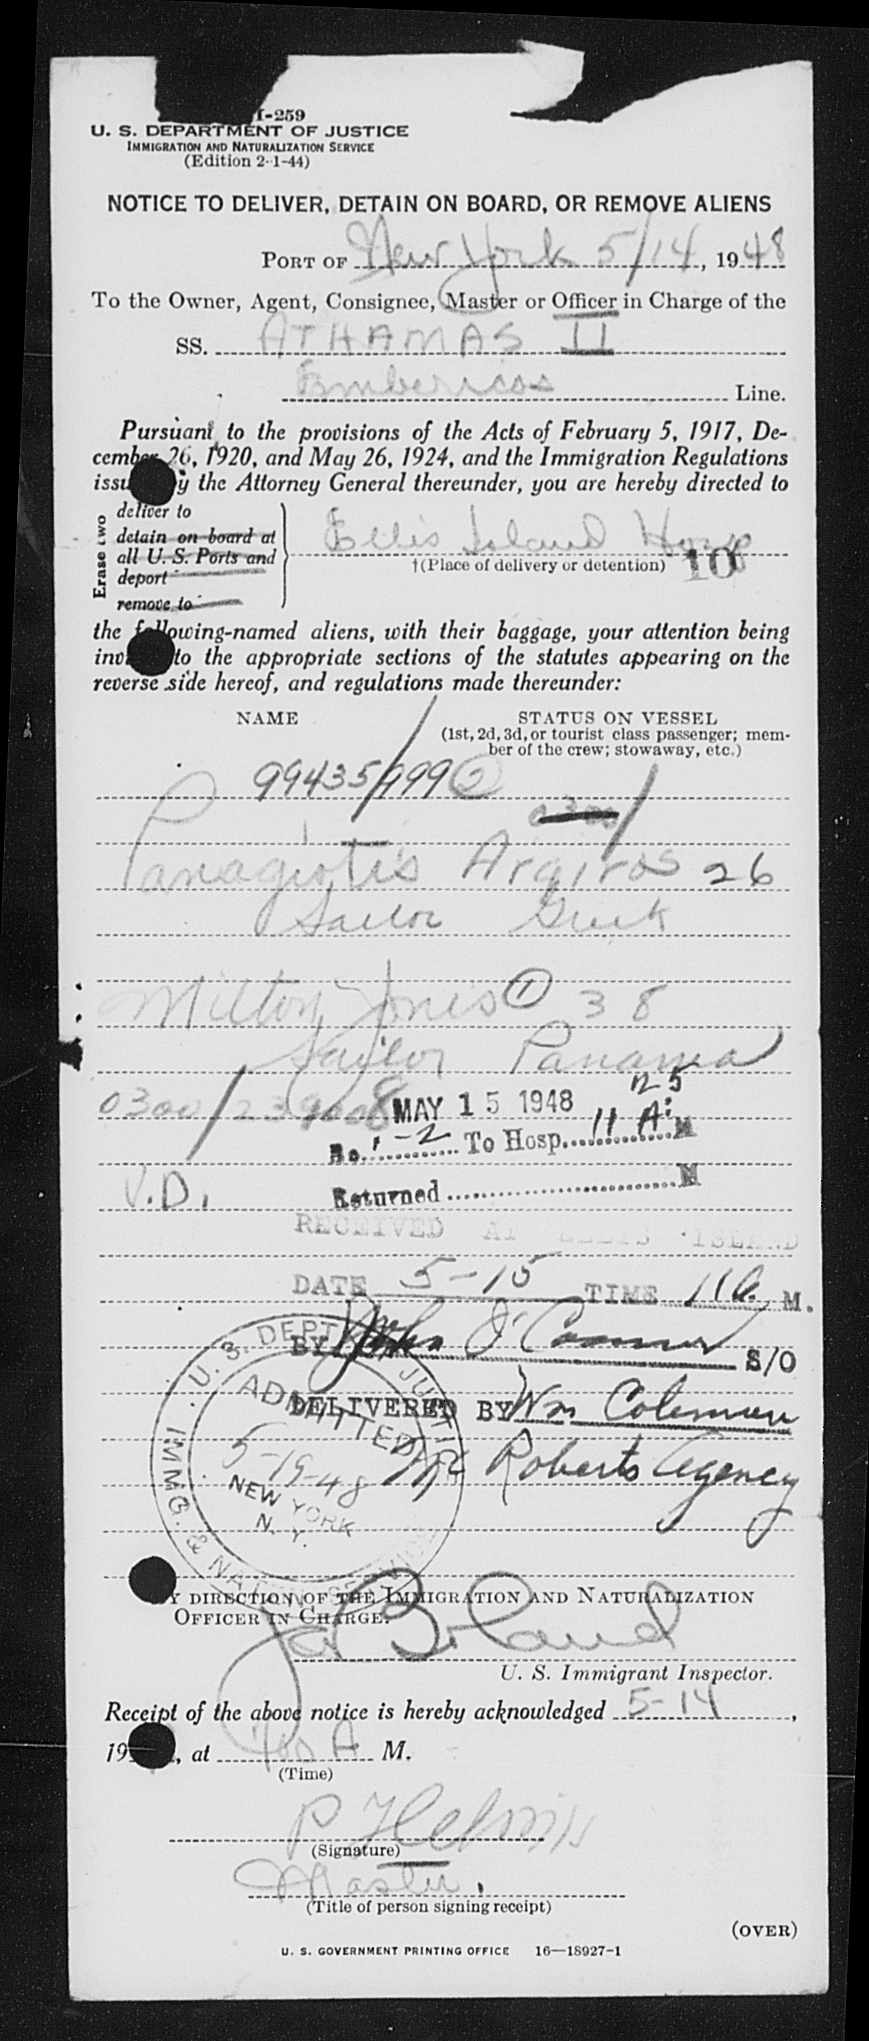 I-259
U. S. DEPARTMENT OF JUSTICE
IMMIGRATION AND NATURALIZATION SERVICE
(Edition 2-1-44)
NOTICE TO DELIVER, DETAIN ON BOARD, OR REMOVE ALIENS
PORT OF New York 5/14, 1948
To the Owner, Agent, Consignee, Master or Officer in Charge of the
SS. ATHAMAS II
Embericos Line.
Pursuant to the provisions of the Acts of February 5, 1917, De-
cember 26, 1920, and May 26, 1924, and the Immigration Regulations
issu y the Attorney General thereunder, you are hereby directed to
Erase two
deliver to
detain on board at
all U. S. Ports and
deport
remove to
Ellis Island Hosp
†(Place of delivery or detention) 10
the following-named aliens, with their baggage, your attention being
inv to the appropriate sections of the statutes appearing on the
reverse side hereof, and regulations made thereunder:
NAME STATUS ON VESSEL
(1st, 2d, 3d, or tourist class passenger; mem-
ber of the crew; stowaway, etc.)
99435/999 2
0300/
Panagiotis Argiros 26
Sailor Greek
Milton Jones 1 38
Sailor Panama
0300/
MAY 15 1948 125
No. 1-2 To Hosp. 11 A. M
V.D.
Returned M
RECEIVED AT ELLIS ISLAND
DATE 5-15 TIME 11 a. M.
BY John J. S/O
DELIVERED BY Wm Coleman
Roberts Agency
U. S. DEPT. JUSTICE
IMMG. & NAT.
ADMITTED
5-19-48
NEW YORK
N. Y.
Y DIRECTION OF THE IMMIGRATION AND NATURALIZATION
OFFICER IN CHARGE.
Boland
U. S. Immigrant Inspector.
Receipt of the above notice is hereby acknowledged 5-14,
19 , at A M.
(Time)
P
(Signature)
Master.
(Title of person signing receipt)
(OVER)
U. S. GOVERNMENT PRINTING OFFICE 16—18927-1